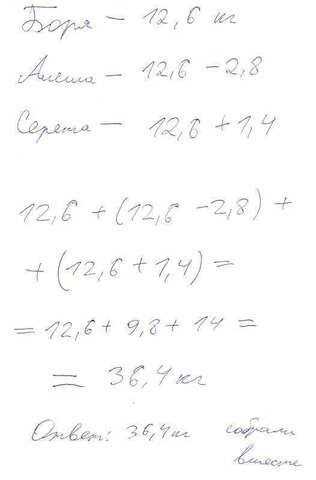 Боря — 12,6 кг
Алеша — 12,6 - 2,8
Сережа — 12,6 + 1,4
12,6 + (12,6 - 2,8) +
+ (12,6 + 1,4) =
= 12,6 + 9,8 + 14 =
= 36,4 кг
Ответ: 36,4 кг собрали
вместе